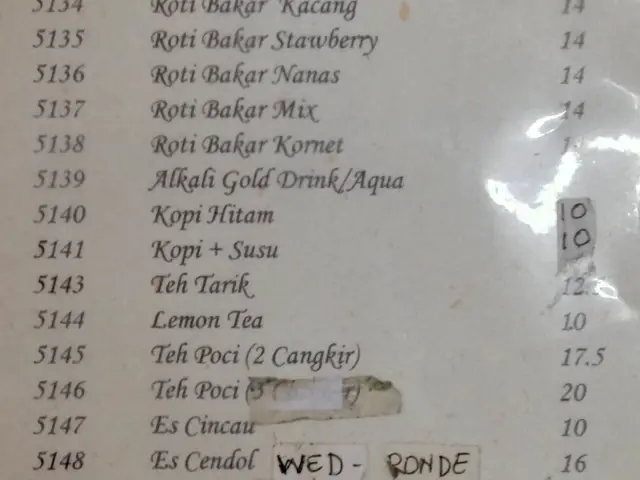 5134 Roti Bakar Kacang 14
5135 Roti Bakar Stawberry 14
5136 Roti Bakar Nanas 14
5137 Roti Bakar Mix 14
5138 Roti Bakar Kornet
5139 Alkali Gold Drink/Aqua
5140 Kopi Hitam 10
5141 Kopi + Susu 10
5143 Teh Tarik
5144 Lemon Tea 10
5145 Teh Poci (2 Cangkir) 17.5
5146 Teh Poci 20
5147 Es Cincau 10
5148 Es Cendol WED - RONDE 16